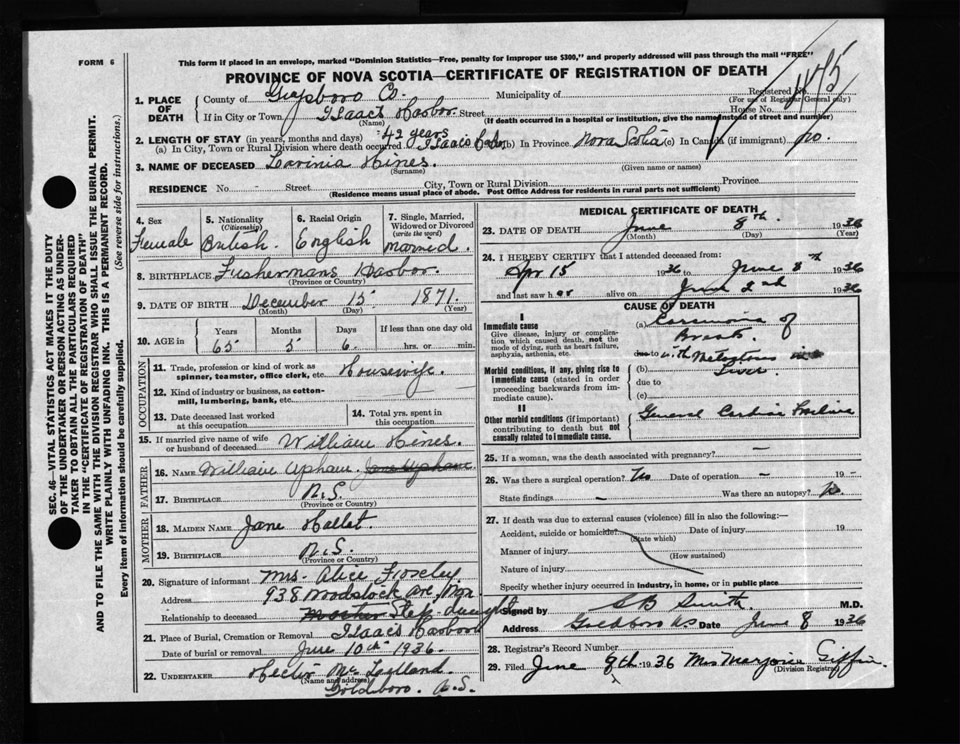 FORM 6
This form if placed in an envelope, marked "Dominion Statistics—Free, penalty for improper use $300," and properly addressed will pass through the mail "FREE"
PROVINCE OF NOVA SCOTIA—CERTIFICATE OF REGISTRATION OF DEATH
SEC. 46—VITAL STATISTICS ACT MAKES IT THE DUTY
OF THE UNDERTAKER OR PERSON ACTING AS UNDER-
TAKER TO OBTAIN ALL THE PARTICULARS REQUIRED
IN THE "CERTIFICATE OF REGISTRATION OF DEATH"
AND TO FILE THE SAME WITH THE DIVISION REGISTRAR WHO SHALL ISSUE THE BURIAL PERMIT.
WRITE PLAINLY WITH UNFADING INK. THIS IS A PERMANENT RECORD.
Every item of information should be carefully supplied. (See reverse side for instructions.)
1. PLACE OF DEATH County of Guysboro Co. Municipality of Registered No.
(For use of Registrar General only)
If in City or Town Isaac's Harbor Street House No.
(Name) (If death occurred in a hospital or institution, give the name instead of street and number)
2. LENGTH OF STAY (in years, months and days) 42 years
(a) In City, Town or Rural Division where death occurred Isaac's Hbr (b) In Province Nova Scotia (c) In Canada (if immigrant) no.
3. NAME OF DECEASED Lavinia Hines.
(Surname) (Given name or names)
RESIDENCE No. - Street City, Town or Rural Division Province
(Residence means usual place of abode. Post Office Address for residents in rural parts not sufficient)
4. Sex Female
5. Nationality (Citizenship) British.
6. Racial Origin English
7. Single, Married, Widowed or Divorced (write the word) married.
8. BIRTHPLACE Fishermans Harbor.
(Province or Country)
9. DATE OF BIRTH December 15 1871.
(Month) (Day) (Year)
10. AGE in Years Months Days If less than one day old
65 5 6 hrs. or min.
OCCUPATION
11. Trade, profession or kind of work as spinner, teamster, office clerk, etc. Housewife.
12. Kind of industry or business, as cotton-mill, lumbering, bank, etc.
13. Date deceased last worked at this occupation
14. Total yrs. spent in this occupation
15. If married give name of wife or husband of deceased William Hines.
FATHER
16. NAME William Upham. Jane Upham.
17. BIRTHPLACE N.S.
(Province or Country)
MOTHER
18. MAIDEN NAME Jane Hallet.
19. BIRTHPLACE N.S.
(Province or Country)
20. Signature of informant Mrs. Alice
Address 938 Woodstock ave,
Relationship to deceased Mother Step-
21. Place of Burial, Cremation or Removal Isaac's Harbor
Date of burial or removal June 10th 1936.
22. UNDERTAKER Hector
(Name and address) Goldboro. N.S.
MEDICAL CERTIFICATE OF DEATH
23. DATE OF DEATH June 8th 1936
(Month) (Day) (Year)
24. I HEREBY CERTIFY that I attended deceased from:
Apr 15 1936 to June 8th 1936
and last saw her alive on June 2nd 1936
CAUSE OF DEATH
I
Immediate cause
Give disease, injury or complication which caused death, not the mode of dying, such as heart failure, asphyxia, asthenia, etc.
(a) Carcinoma of
Breast
due to with
Morbid conditions, if any, giving rise to immediate cause (stated in order proceeding backwards from immediate cause).
(b) Liver
due to
(c)
II
Other morbid conditions (if important) contributing to death but not causally related to immediate cause.
General Cardiac
25. If a woman, was the death associated with pregnancy? -
26. Was there a surgical operation? No Date of operation - 19 -
State findings - Was there an autopsy? No
27. If death was due to external causes (violence) fill in also the following:—
Accident, suicide or homicide? Date of injury 19
(State which)
Manner of injury
(How sustained)
Nature of injury
Specify whether injury occurred in industry, in home, or in public place
Signed by S B Smith M.D.
Address Goldboro NS Date June 8 1936
28. Registrar's Record Number
29. Filed June 9th 1936 Mrs Marjorie Giffin.
(Division Registrar)